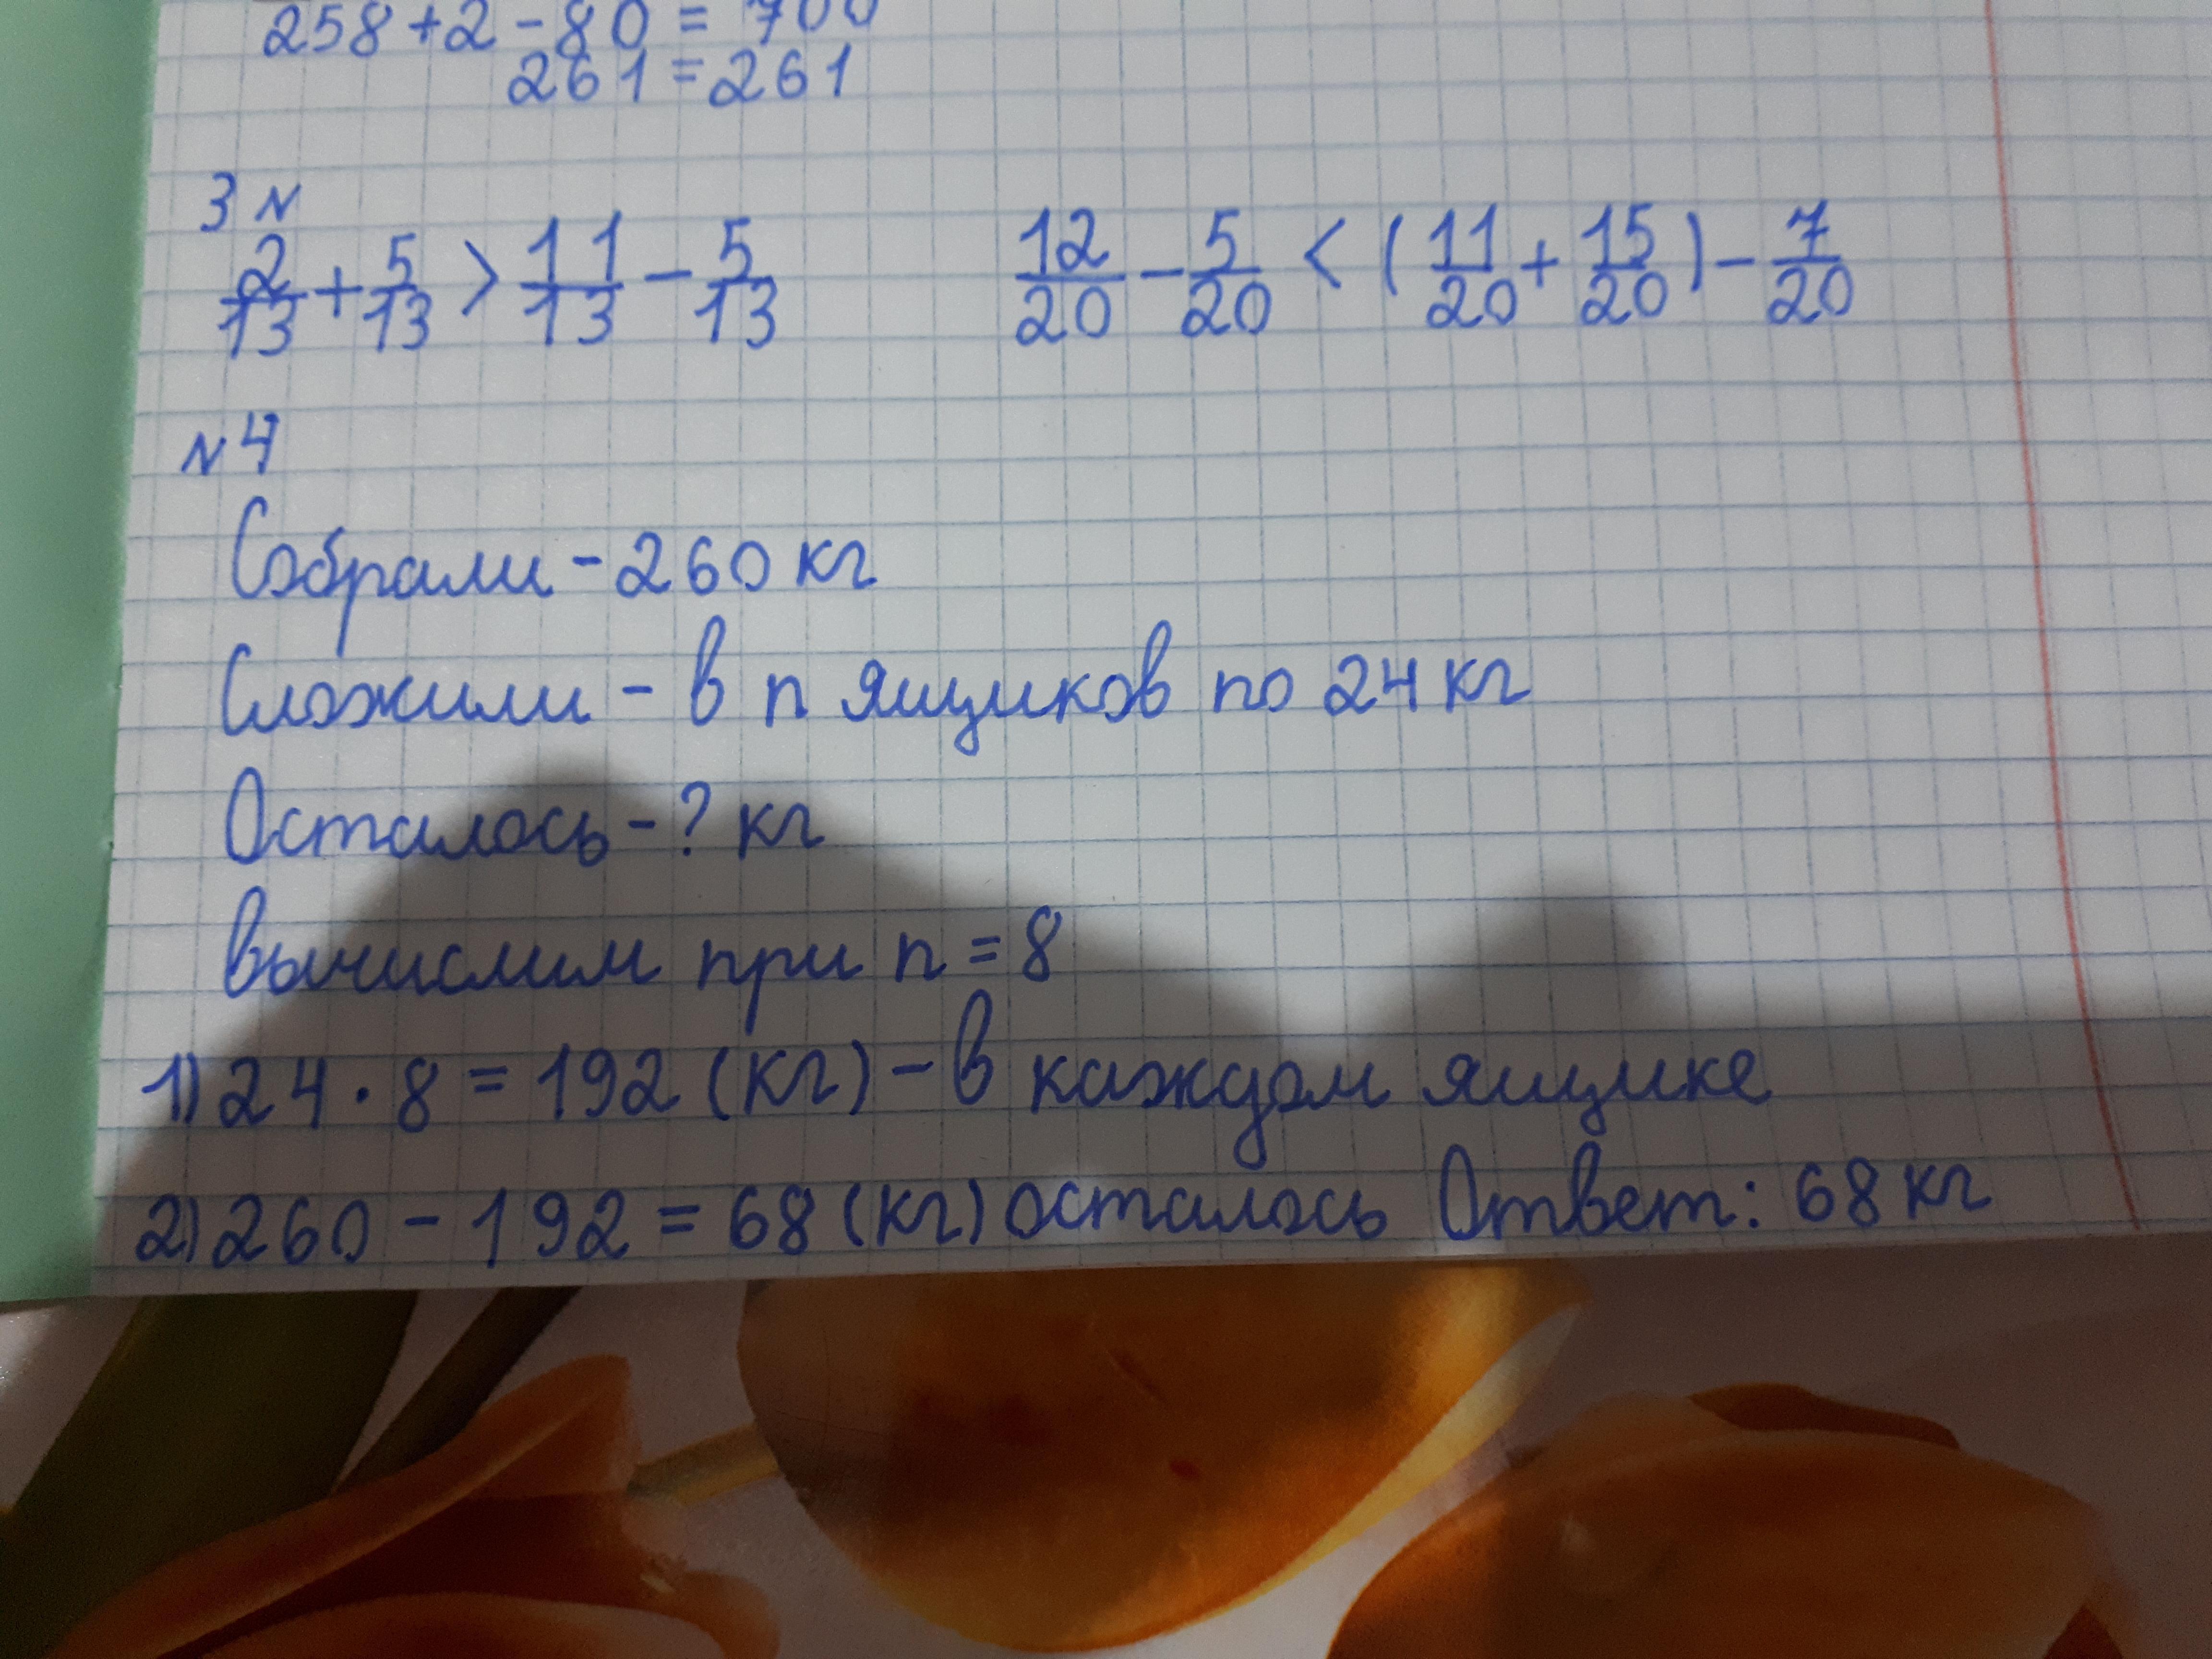 258+2-80 = 700
261 = 261
3 N
2/13 + 5/13 > 11/13 - 5/13   12/20 - 5/20 < (11/20 + 15/20) - 7/20
N4
Собрали - 260 кг
Сложили - в n ящиков по 24 кг
Осталось - ? кг
вычислим при n = 8
1) 24 · 8 = 192 (кг) - в каждом ящике
2) 260 - 192 = 68 (кг) осталось Ответ: 68 кг